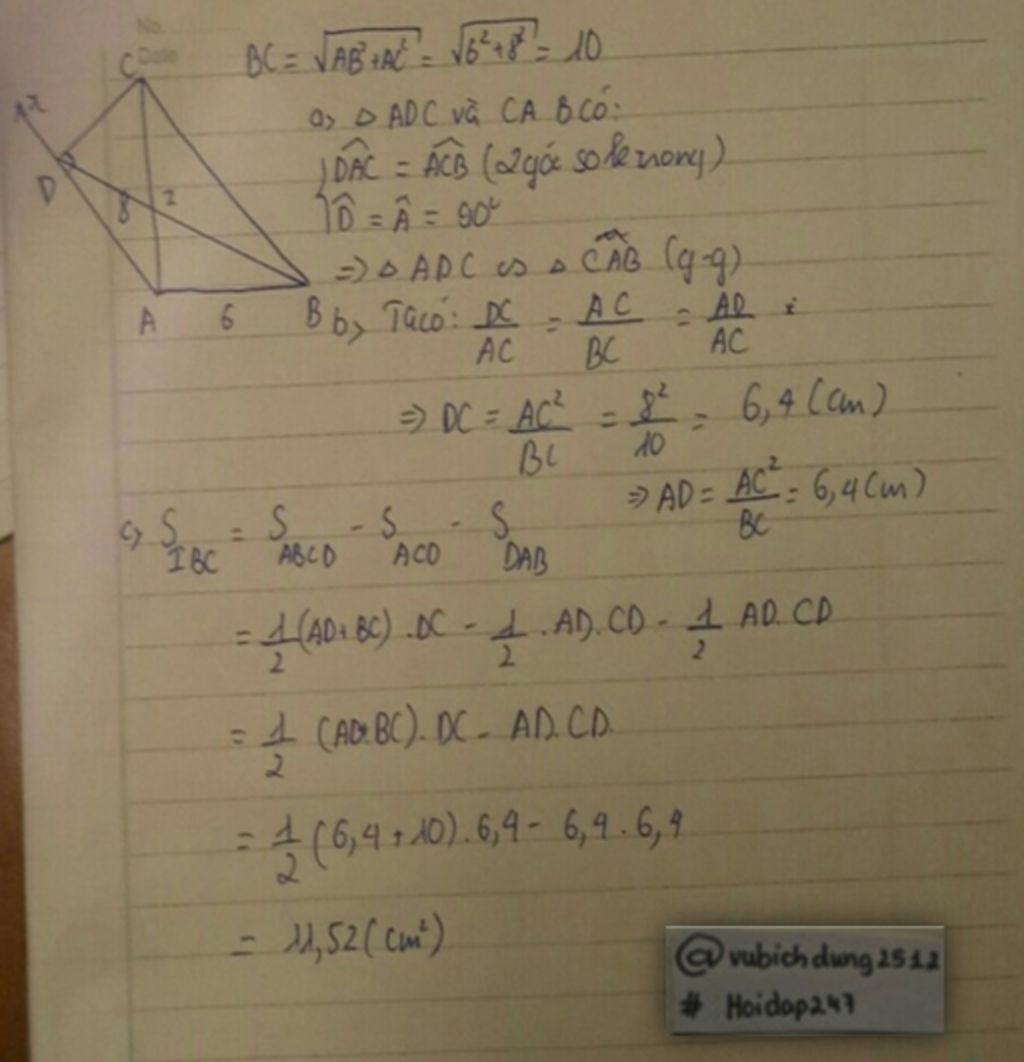 No.
Date
BC = √AB²+AC² = √6²+8² = 10
C
x
D
8
I
A
6
B
a, △ ADC và CAB có:
DAC = ACB (2 góc so le trong)
D = A = 90°
=> △ ADC ∽ △ CAB (g-g)
b, Ta có: DC/AC = AC/BC = AD/AC
=> DC = AC²/BC = 8²/10 = 6,4 (cm)
=> AD = AC²/BC = 6,4 (cm)
c, S IBC = S ABCD - S ACD - S DAB
= 1/2 (AD+BC) .DC - 1/2 .AD.CD - 1/2 AD.CD
= 1/2 (AD+BC). DC - AD.CD.
= 1/2 (6,4 + 10) . 6,4 - 6,4 . 6,4
= 11,52 (cm²)
@vubichdung2512
# Hoidap247